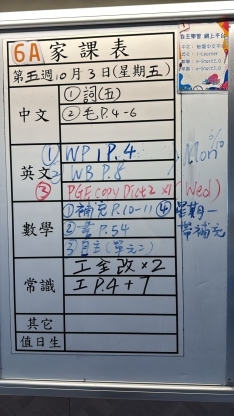 6A 家課表
第五週10月3日(星期五)
中文
①詞(五)
②毛P.4-6
英文
① WP 1 P.4
2 WB P.8
③ PGE copy Dict2 X1 (Wed)
Mon
數學
①補充P.10-11 ④星期一
帶補充
②書P.54
③自主(單元二)
常識
工全改×2
工P.4+7
其它
值日生
自主學習 網上平台